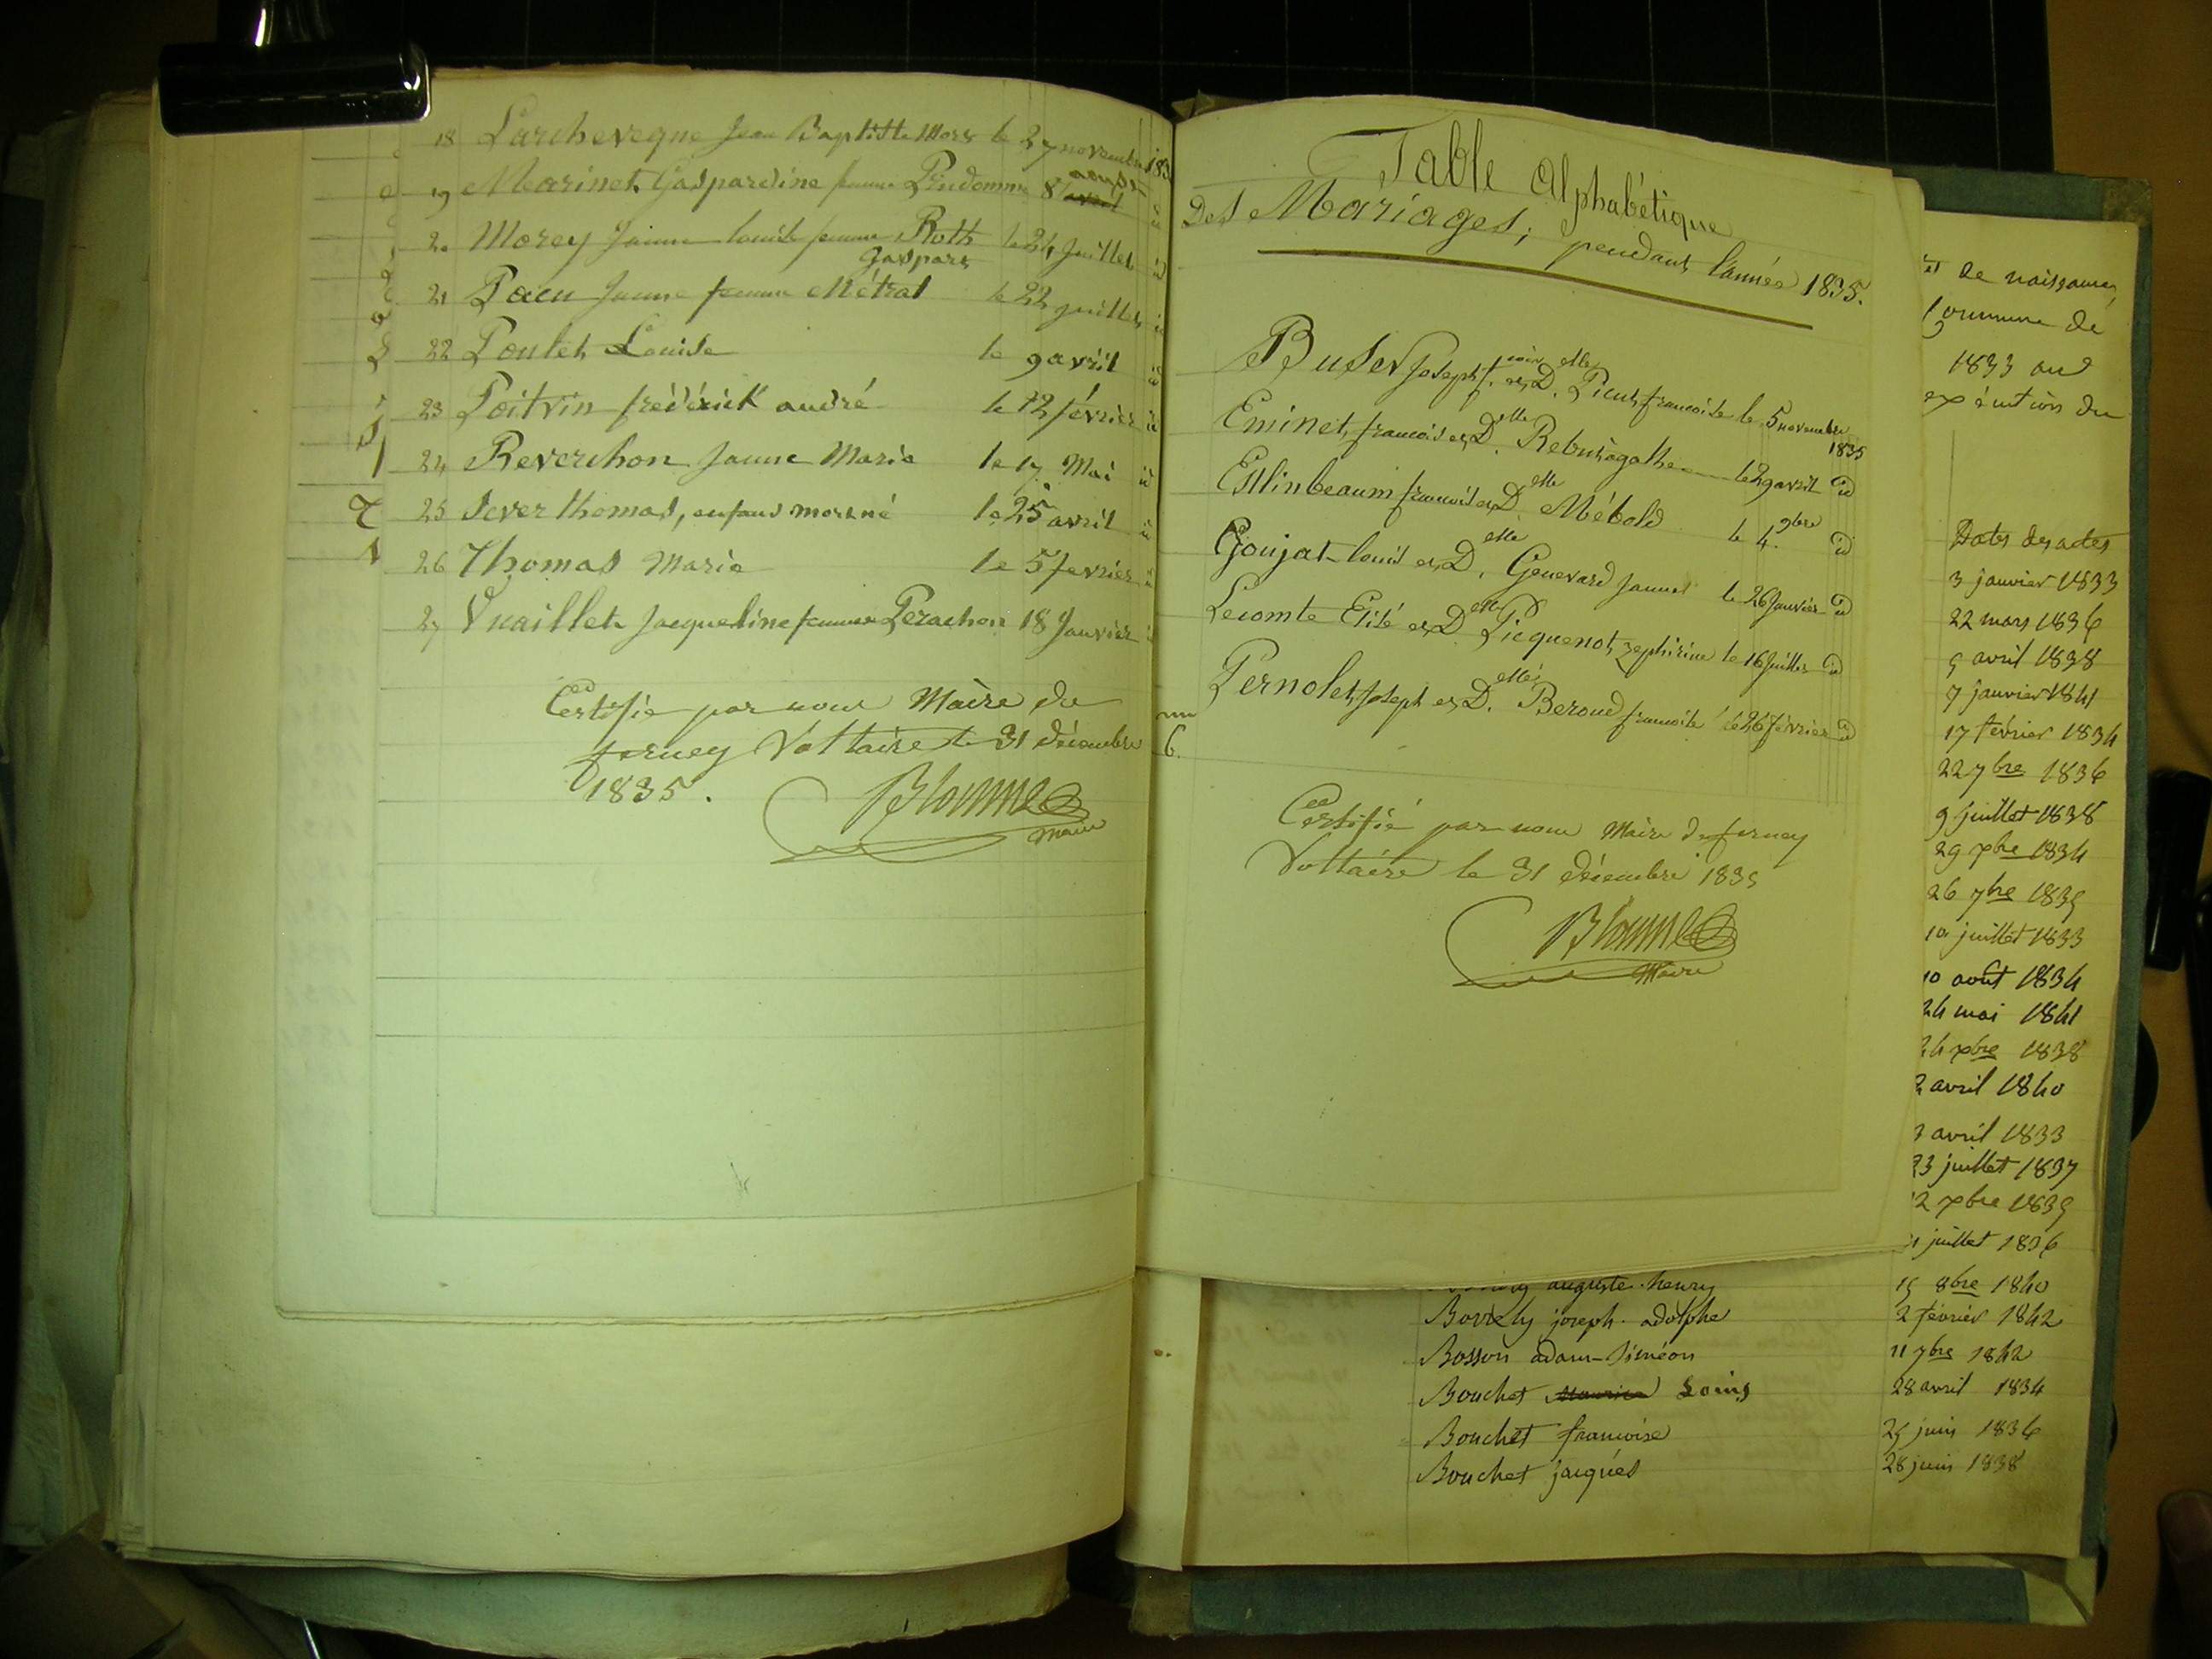 18 Larcheveque Jean Baptiste Mors le 27 novembre 183
19 Marinet Gaspardine femme Prudomme 8 aoust
20 Morey Jeanne louise femme Roth le 24 Juillet id
Gaspars
21 Pacu Jeanne femme Métral le 22 juillet id
22 Poulet Louise le 9 avril id
23 Poitvin frédérick andré le 12 février id
24 Reverchon Jeanne Marie le 17 Mai id
25 Sever thomas, enfant mort né le 25 avril id
26 Thomas Marie le 5 fevrier id
27 Vuaillet Jacqueline femme Perachon 18 Janvier id
Certifié par nous Maire de
ferney Voltaire le 31 décembre
1835.
Blonne
Maire
Table Alphabétique
Des Mariages, pendant l'année 1835.
Buser Joseph f. et D.elle Picut francoise le 5 novembre
1835
Eminet francois et D.elle Rebut agathe le 29 avril id
Esslinbeaum francois et D.elle Mébold le 4 9bre id
Goujat louis et D.elle Genevard Jeanne le 26 Janvier id
Lecomte Elisé et D.elle Picquenot zephirine le 16 Juillet id
Pernolet Joseph et D.elle Beroud francoise le 26 février id
6.
Certifié par nous Maire de ferney
Voltaire le 31 décembre 1835
Blonne
Maire
de naissances
Commune de
1833 au
exécution du
Dates des actes
3 janvier 1833
22 mars 1836
9 avril 1838
7 janvier 1841
17 février 1834
22 7bre 1836
9 juillet 1838
29 xbre 1834
26 7bre 1839
10 juillet 1833
10 août 1834
24 mai 1841
24 xbre 1838
2 avril 1840
3 avril 1833
23 juillet 1837
12 xbre 1839
1 juillet 1836
auguste henry 15 8bre 1840
Borrely joseph adolphe 2 février 1842
Bosson adam-siméon 11 7bre 1842
Bouchet Maurice Louis 28 avril 1834
Bouchet francoise 25 juin 1836
Bouchet jacques 28 juin 1838